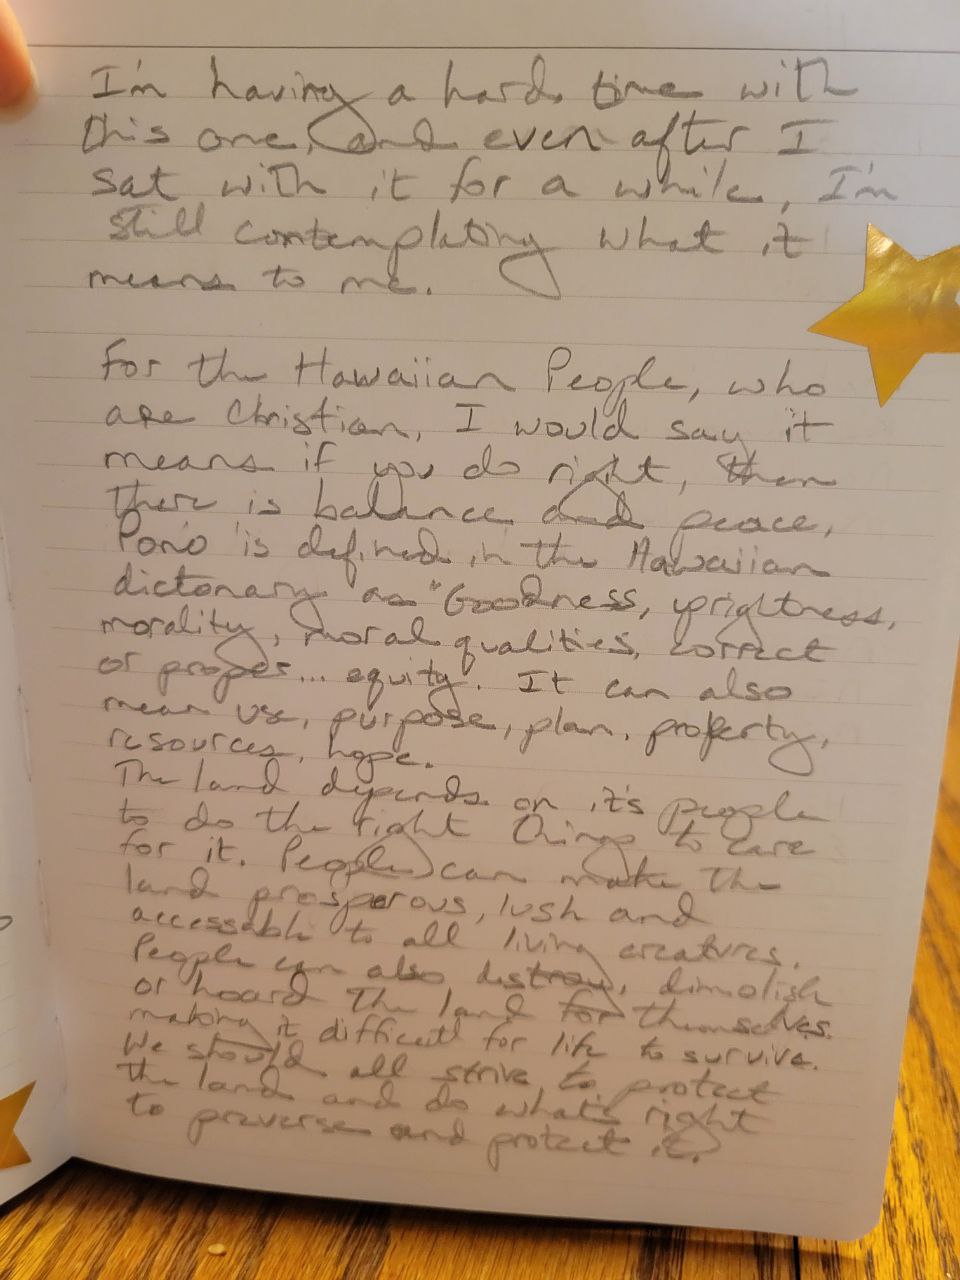 I'm having a hard time with
this one, and even after I
sat with it for a while, I'm
still contemplating what it
means to me.
For the Hawaiian People, who
are Christian, I would say it
means if you do right, then
there is balance and peace.
Pono is defined in the Hawaiian
dictonary as "Goodness, uprightness,
morality, moral qualities, correct
or proper... equity. It can also
mean use, purpose, plan, property,
resources, hope.
The land depends on it's people
to do the right things to care
for it. People can make the
land prosperous, lush and
accessable to all living creatures.
People can also distroy, dimolish
or hoard the land for themselves.
making it difficult for life to survive.
We should all strive to protect
the land and do what's right
to preverse and protect it.